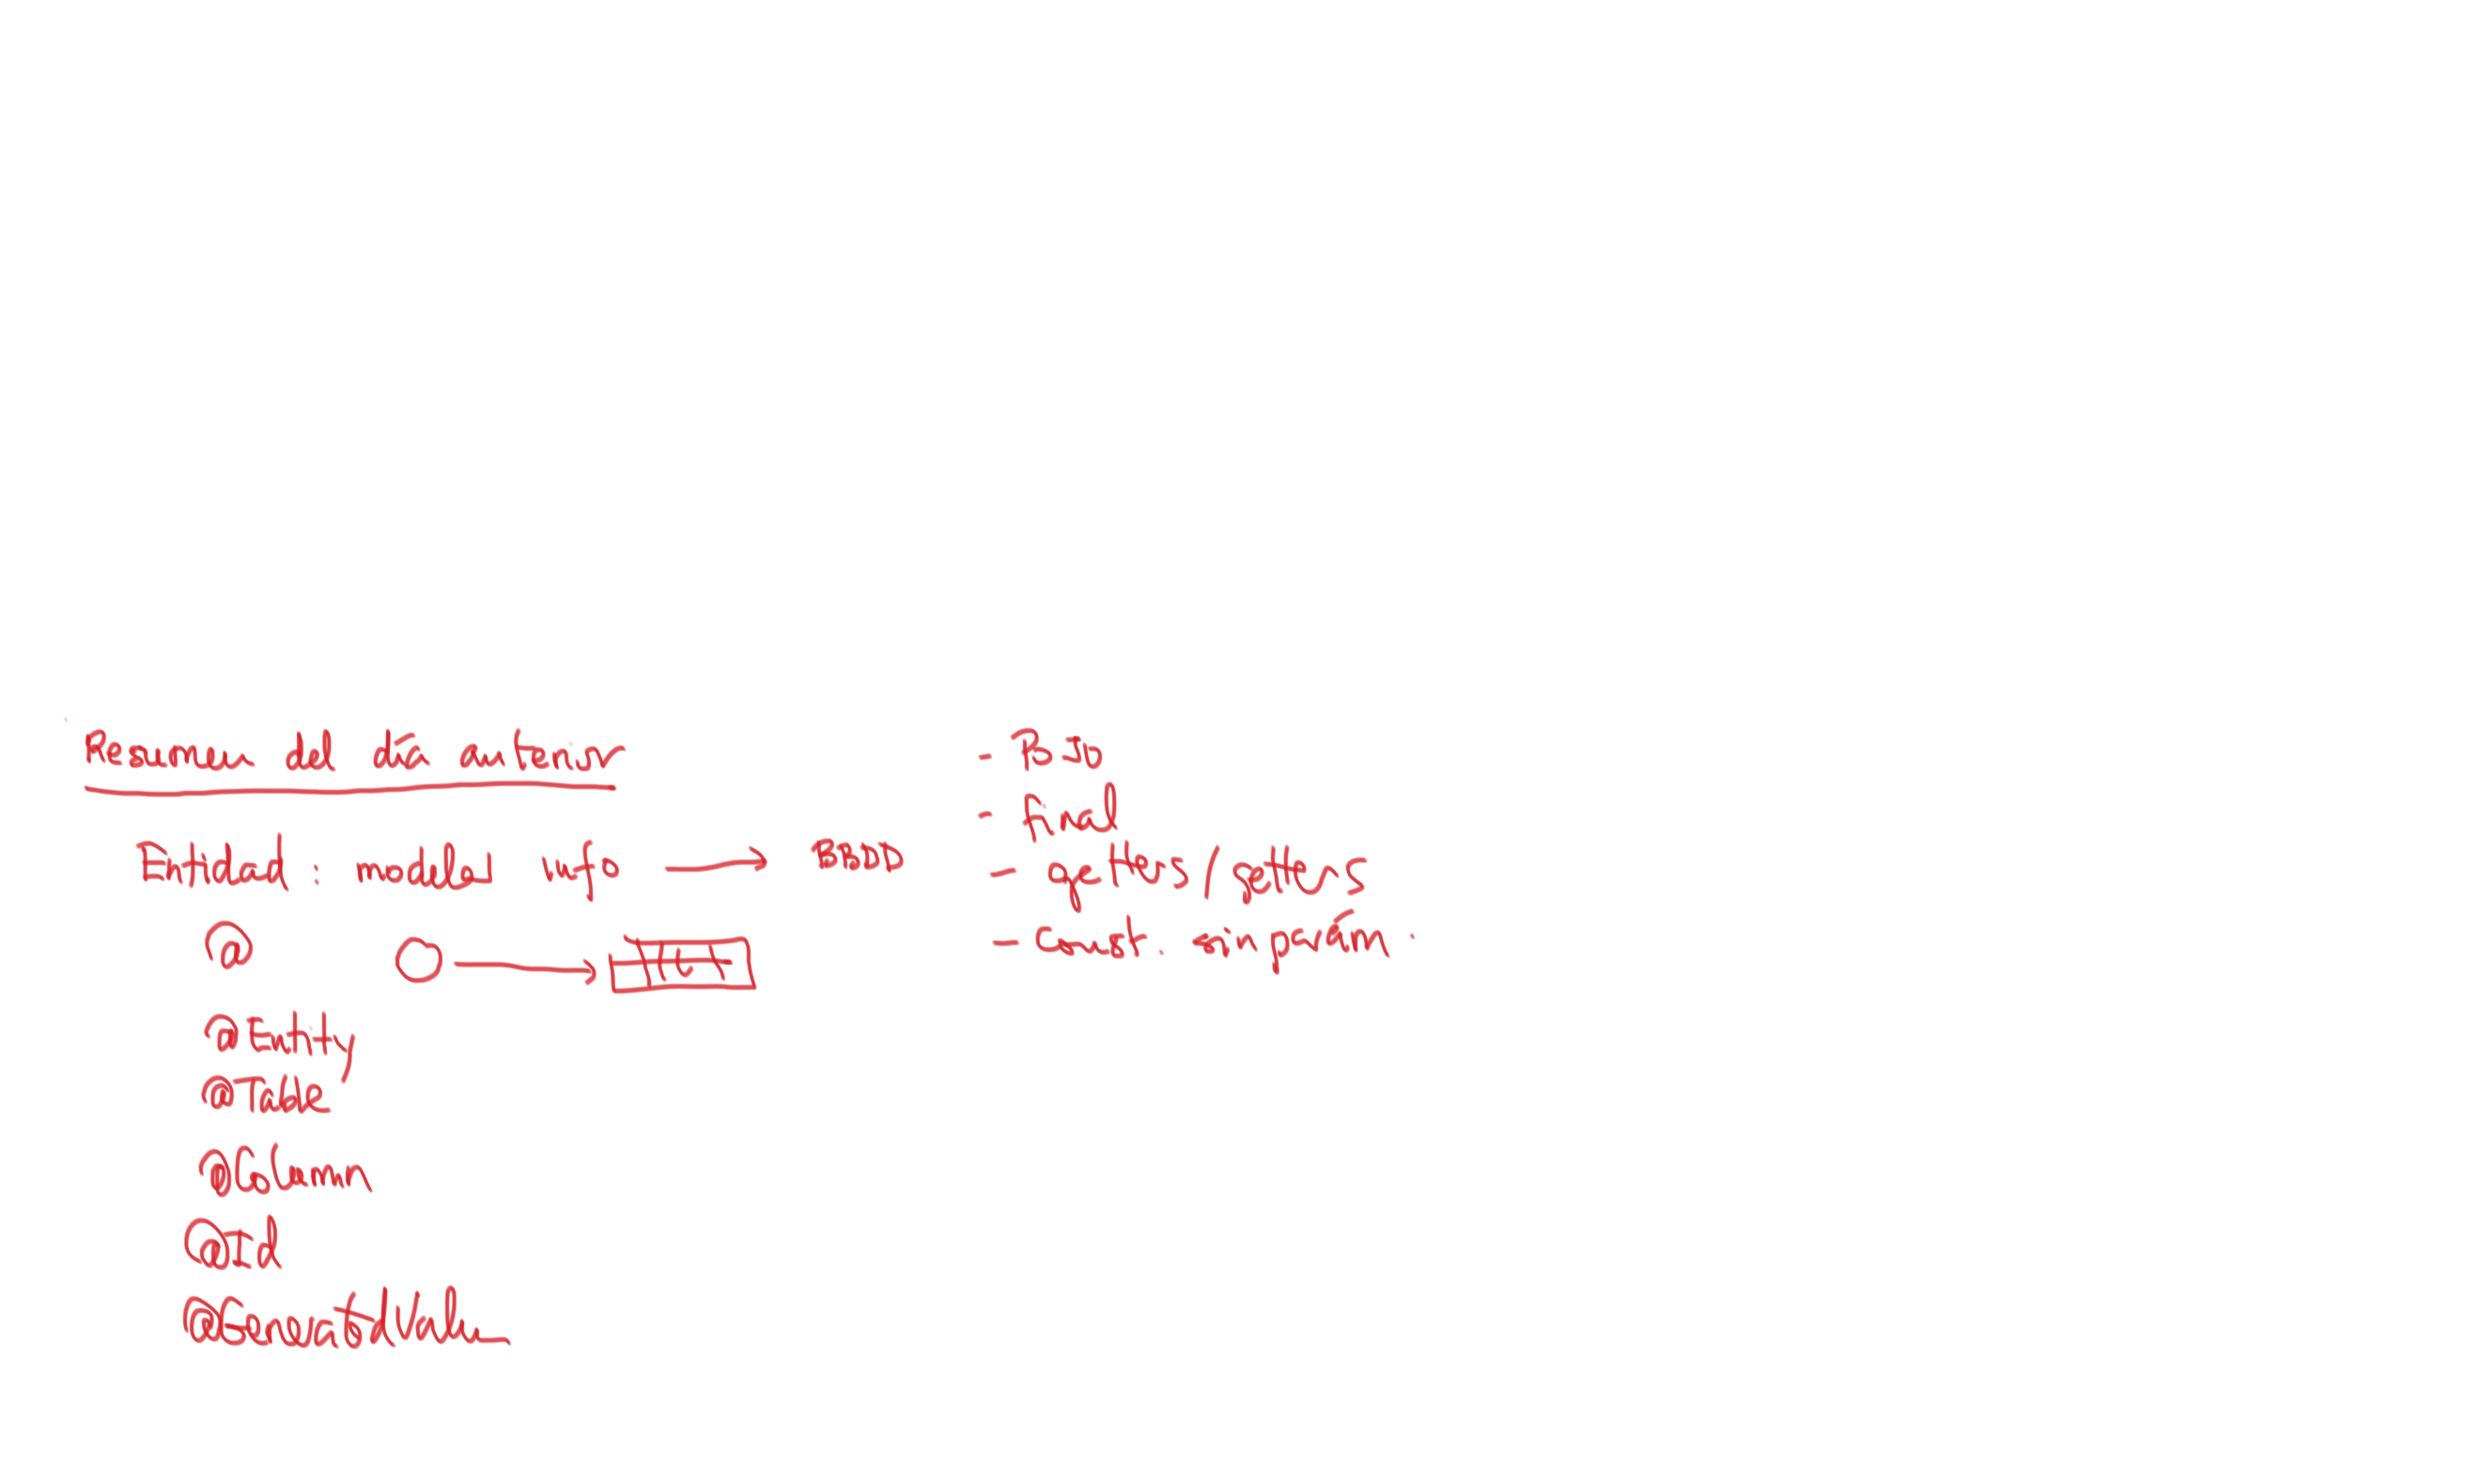 Resumen del día anterior
Entidad: modela info → BBDD
@
@Entity
@Table
@Column
@Id
@GeneratedValue
- POJO
- final
- getters/setters
- Const. sin parám.